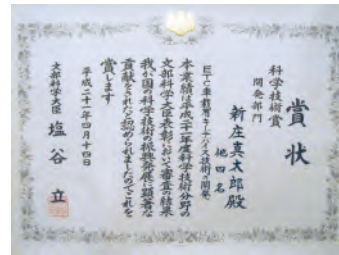 賞状
科学技術賞
開発部門
新庄真太郎殿
他四名
ETC車載器キーデバイス技術の開発
本業績は平成二十一年度科学技術分野の
文部科学大臣表彰において審査の結果
我が国の科学技術の振興発展に顕著な
貢献をされたと認められましたのでこれを
賞します
平成二十一年四月十四日
文部科学大臣 塩谷立